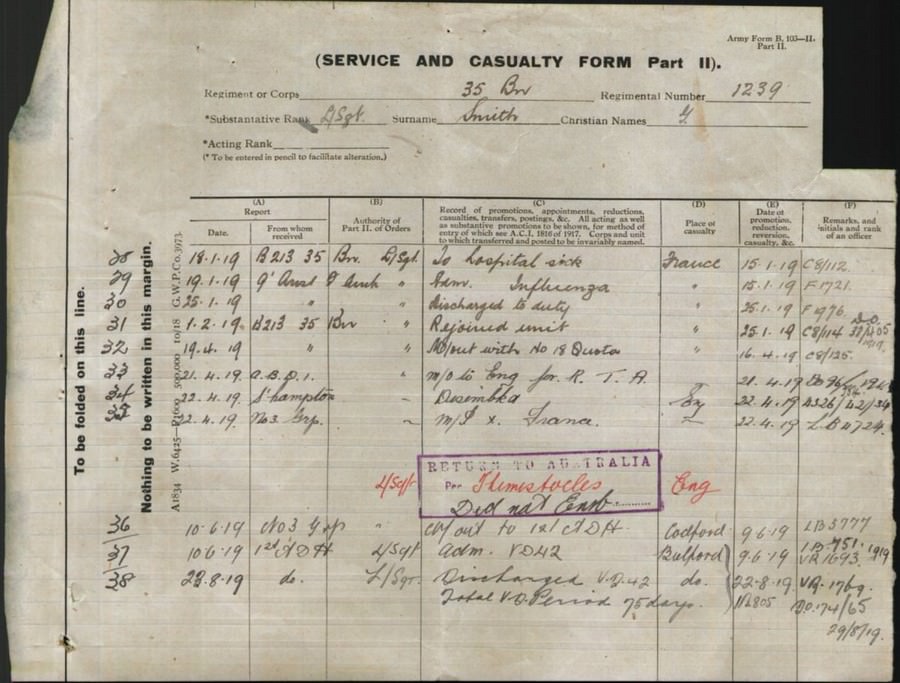 Army Form B. 103—II.
Part II.
(SERVICE AND CASUALTY FORM Part II).
Regiment or Corps 35 Bn Regimental Number 1239
*Substantative Rank L/Sgt. Surname Smith Christian Names G
*Acting Rank
(* To be entered in pencil to facilitate alteration.)
To be folded on this line.
Nothing to be written in this margin.
A1834 W.6425—P1600 500,000 10/18 G.W.P.Co.3973.
(A) Report
Date. From whom received
(B) Authority of Part II. of Orders
(C) Record of promotions, appointments, reductions, casualties, transfers, postings, &c. All acting as well as substantive promotions to be shown, for method of entry of which see A.C.I. 1816 of 1917. Corps and unit to which transferred and posted to be invariably named.
(D) Place of casualty
(E) Date of promotion, reduction, reversion, casualty, &c.
(F) Remarks, and initials and rank of an officer
28 18.1.19 B213 35 Bn. L/Sgt. To hospital sick France 15.1.19 C8/112.
29 19.1.19 " Adm. Influenza " 15.1.19 F1721.
30 25.1.19 " " Discharged to duty " 25.1.19 F1976.
31 1.2.19 B213 35 Bn " Rejoined unit " 25.1.19 C8/114
32 19.4.19 " " M/out with No 18 Quota " 16.4.19 C8/125.
33 21.4.19 A.B.D.1. " m/o to Eng for R.T.A. 21.4.19
34 22.4.19 S'hampton Disembkd Eng 22.4.19
35 22.4.19 No3 Grp. m/I x. France. 22.4.19 LB4724.
RETURN TO AUSTRALIA
L/Sgt Per Themistocles Eng
Did not Emb.
36 10.6.19 No 3 Grp " M/out to 1st A D H. Codford 9.6.19 LB3777
37 10.6.19 1st A D H L/Sgt adm. VD42 Bulford 9.6.19 VR1693.
38 22.8.19 do. L/Sgt. Discharged V.D.42 do. 22.8.19 VR.1769.
Total V.D. Period 75 days. D.O.174/65
29/8/19.